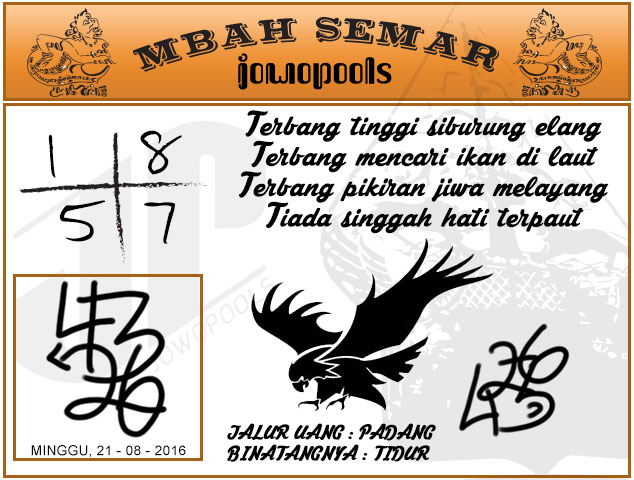 MBAH SEMAR
jowopools
Terbang tinggi siburung elang
Terbang mencari ikan di laut
Terbang pikiran jiwa melayang
Tiada singgah hati terpaut
1 8
5 7
JOWOPOOLS
JALUR UANG : PADANG
BINATANGNYA : TIDUR
MINGGU, 21 - 08 - 2016